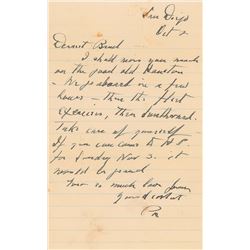 San Diego
Oct 2
Dearest
I shall miss you much
on the good old Houston
— We go aboard in a few
hours — then the fleet
exercises, then southward.
Take care of yourself —
If you can come to H.P.
for Sunday Nov 3. it
would be grand
Ever so much love from
your devoted